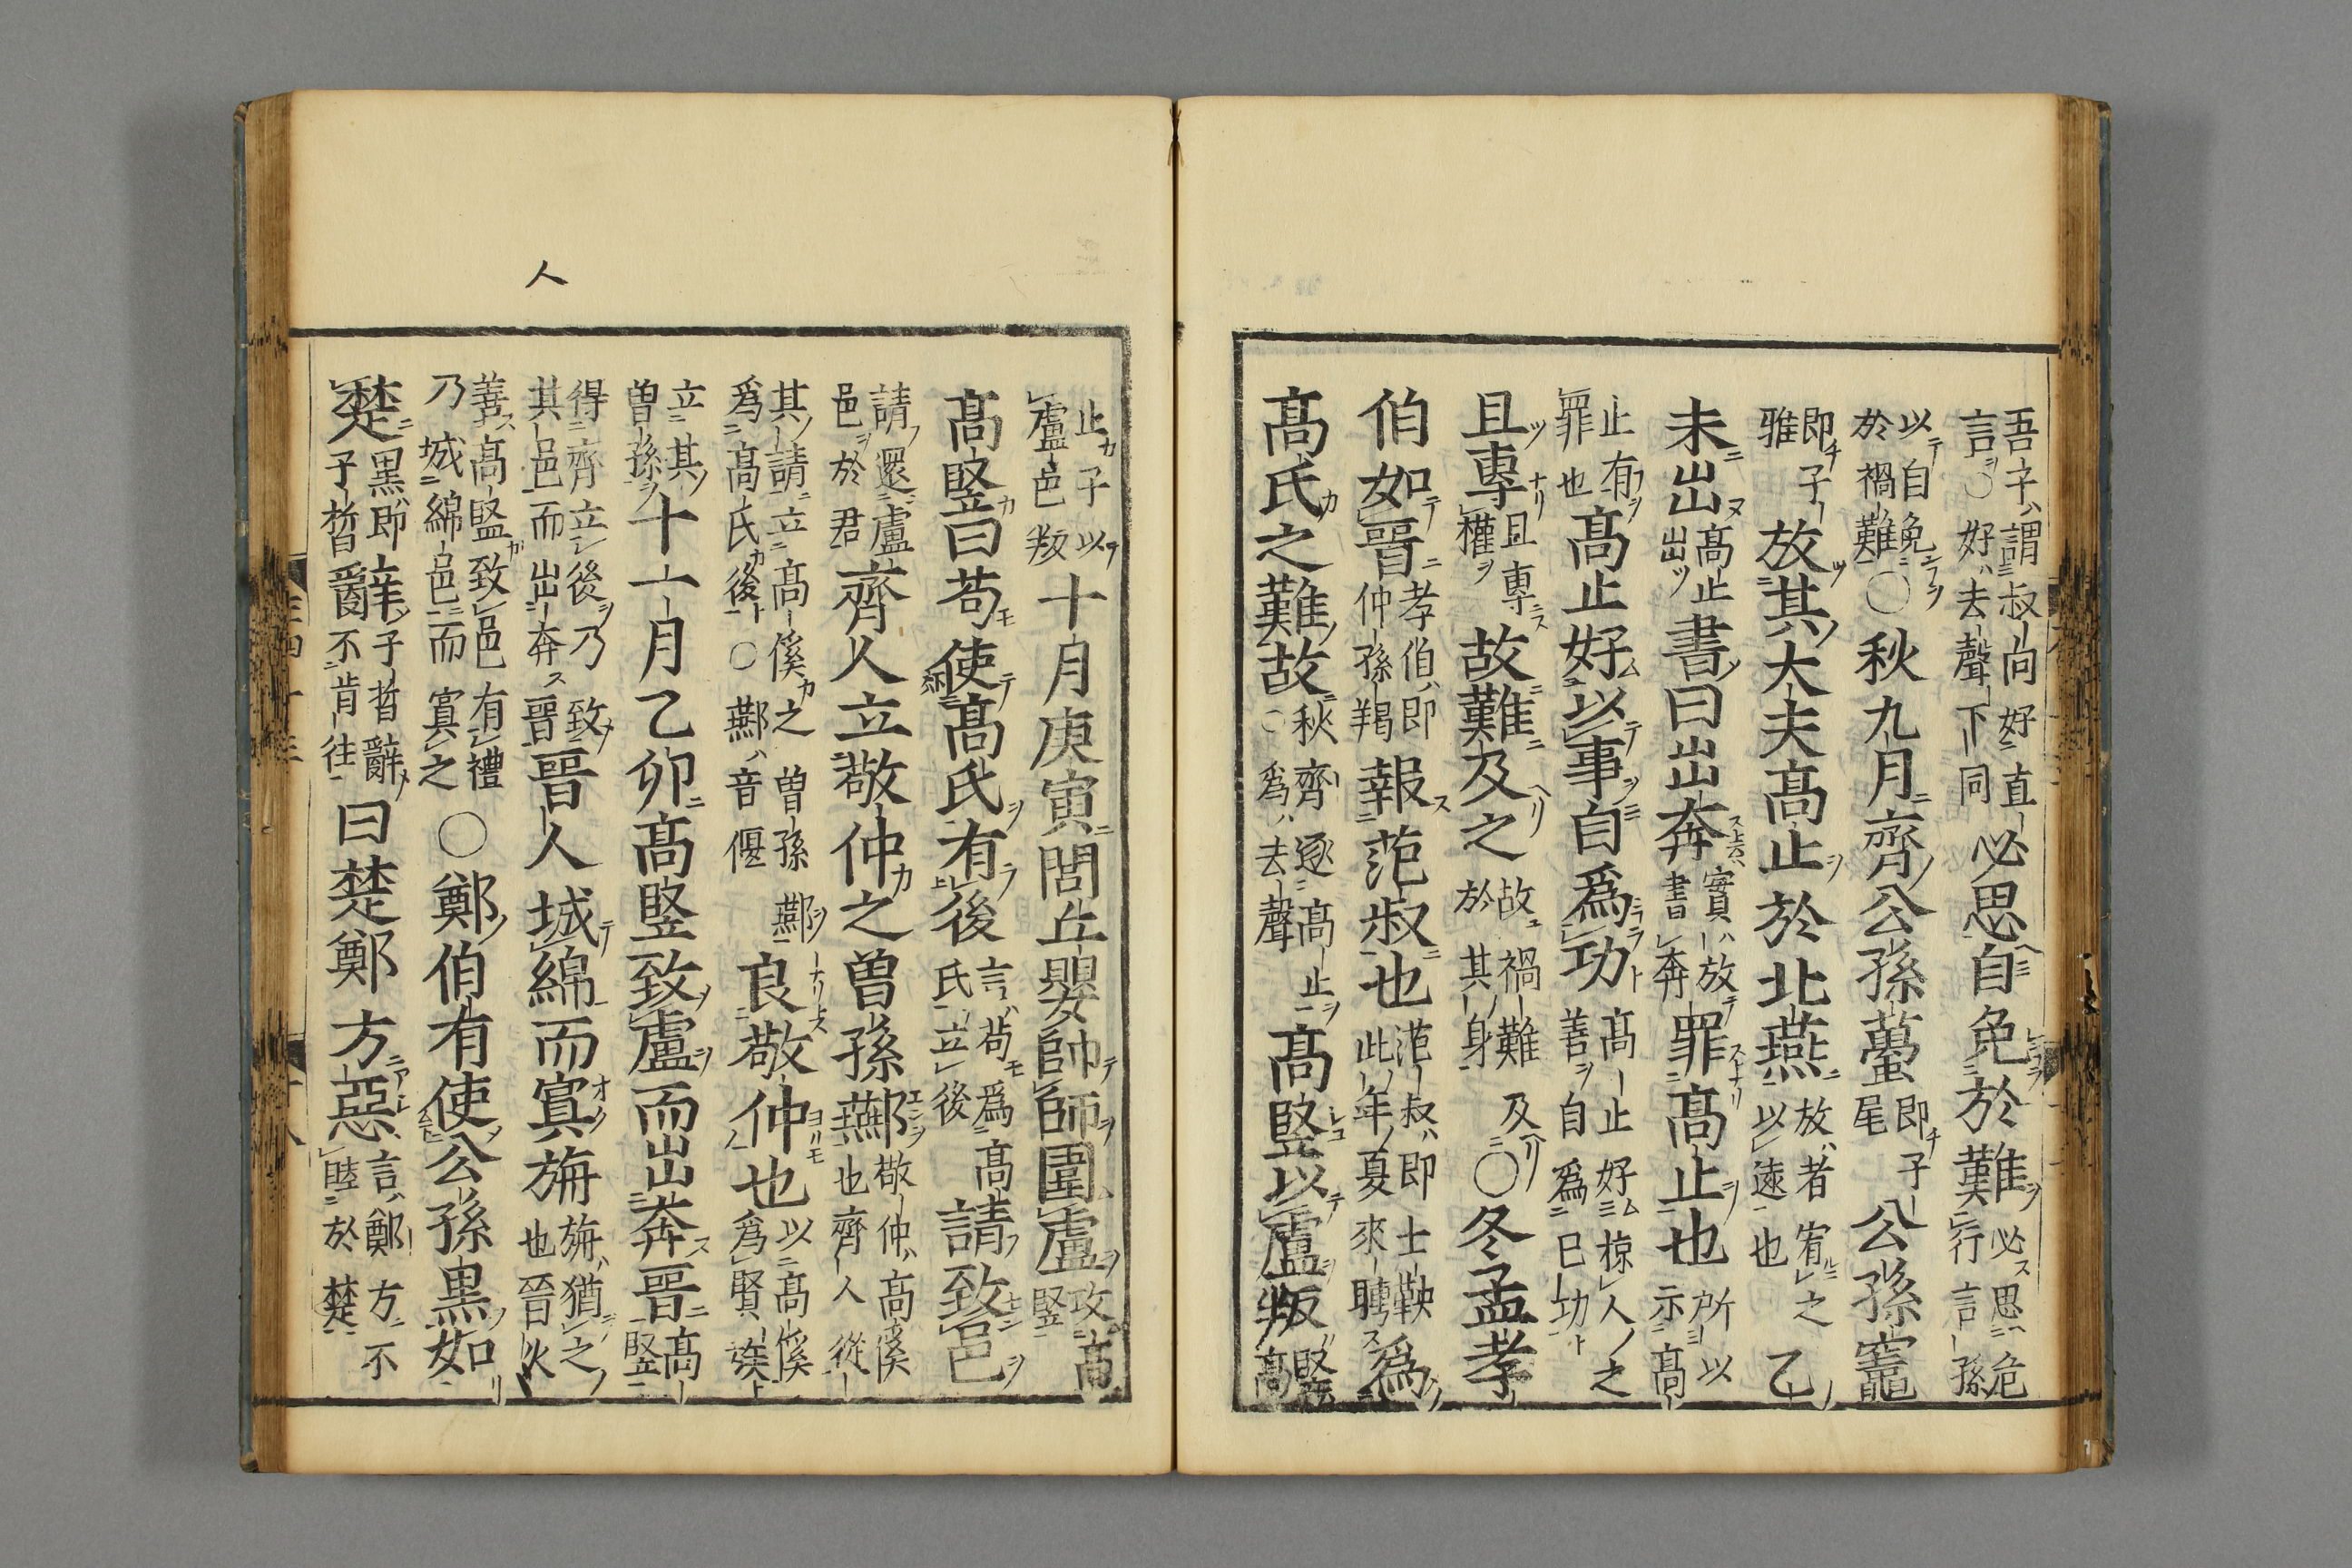 吾子謂叔向好直言〇好去聲下同必思自免於難必思危行言孫
以自免於禍難〇秋九月齊公孫蠆即子尾公孫竈
即子雅放其大夫高止於北燕放者宥之以遠也乙
未出高止出書曰出奔實放書奔罪高止也所以示高
止有罪也高止好以事自爲功高止好掠人之善自爲已功
且專且專權故難及之故禍難及於其身〇冬孟孝
伯如晉孝伯即仲孫羯報范叔也范叔即士鞅此年夏來聘爲
高氏之難故秋齊逐高止〇爲去聲高竪以盧叛竪高
止子以盧邑叛十月庚寅閭丘嬰帥師圍盧攻高竪
高竪曰苟使高氏有後言苟爲高氏立後請致邑
請還盧邑於君齊人立敬仲之曾孫酀敬仲高傒也齊人從
其請立高傒之曾孫酀爲高氏後〇酀音偃良敬仲也以高傒爲賢族
立其曾孫十一月乙卯高竪致盧而出奔晉高竪
得齊立後乃致其邑而出奔晉晉人城綿而寘旃旃猶之也晉人
善高竪致邑有禮乃城綿邑而寘之〇鄭伯有使公孫黑如
楚黑即子晳辭子晳辭不肯往曰楚鄭方惡言鄭方不睦於楚